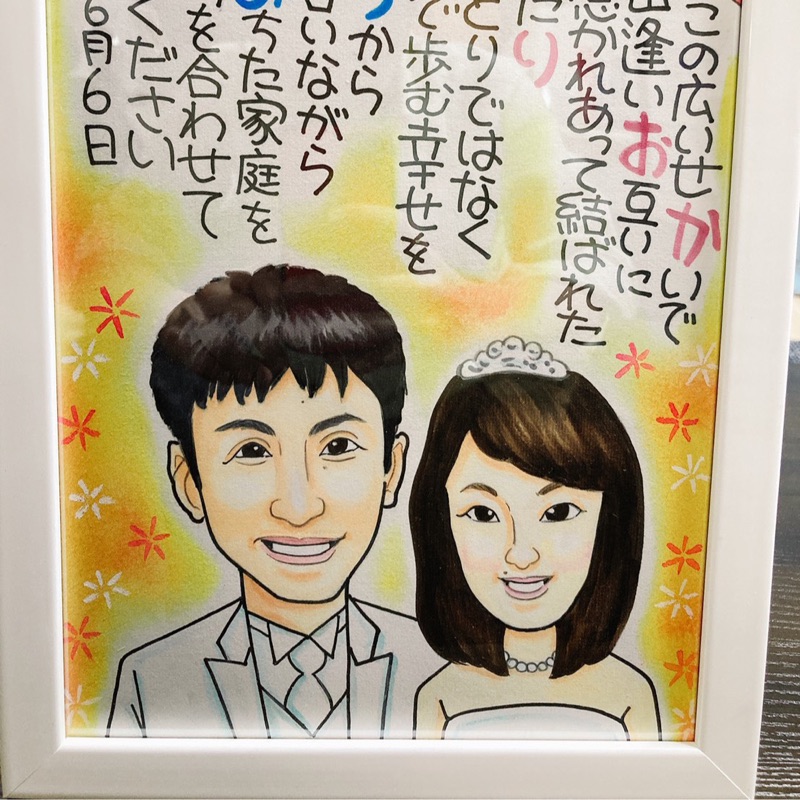 この広いせかいで
出逢いお互いに
惹かれあって結ばれた
たり
とりではなく
で歩む幸せを
から
いながら
ちた家庭を
を合わせて
ください
6月6日